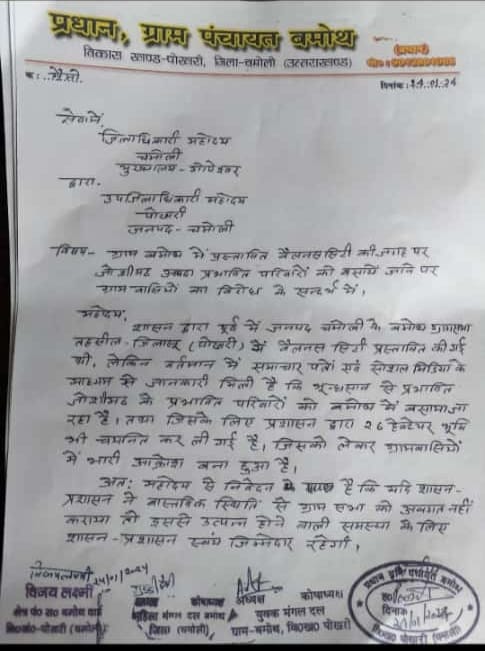 प्रधान, ग्राम पंचायत बमोथ
विकास खण्ड-पोखरी, जिला-चमोली (उत्तराखण्ड)
(प्रधान)
दिनांक: 24.01.24
सेवा में,
जिलाधिकारी महोदय
चमोली
मुख्यालय - गोपेश्वर
द्वारा.
उपजिलाधिकारी महोदय
पोखरी
जनपद - चमोली
विषय- ग्राम बमोथ में प्रस्तावित वैलनस सिटी की जगह पर
जोशीमठ आपदा प्रभावित परिवारों को बसाये जाने पर
ग्राम वासियों का विरोध के सन्दर्भ में,
महोदय,
शासन द्वारा पूर्व में जनपद चमोली के बमोथ ग्रामसभा
तहसील- जिलासू (पोखरी) में वैलनस सिटी प्रस्तावित की गई
थी, लेकिन वर्तमान में समाचार पत्रों एवं सोशल मिडिया के
माध्यम से जानकारी मिली है कि भू-धसाव से प्रभावित
जोशीमठ के प्रभावित परिवारों को बमोथ में बसाया जा
रहा है, तथा जिसके लिए प्रशासन द्वारा 26 हेक्टेयर भूमि
भी चयनित कर ली गई है, जिसको लेकर ग्रामवासियों
में भारी आक्रोश बना हुआ है,
अत: महोदय से निवेदन है कि यदि शासन-
प्रशासन ने वास्तविक स्थिति से ग्राम सभा को अवगत नहीं
कराया तो इससे उत्पन्न होने वाली समस्या के लिए
शासन - प्रशासन स्वयं जिम्मेदार रहेगी,
24/01/2024
विजय लक्ष्मी
क्षेत्र पं० स० बमोथ वार्ड
वि०ख०-पोखरी (चमोली)
कोषाध्यक्ष
महिला मंगल दल बमोथ
जिला (चमोली)
अध्यक्ष कोषाध्यक्ष
युवक मंगल दल
ग्राम-बमोथ, वि०ख० पोखरी
प्रधान ग्राम पंचायत बमोथ
दिनांक 24/01/2024
वि०ख० पोखरी (चमोली)